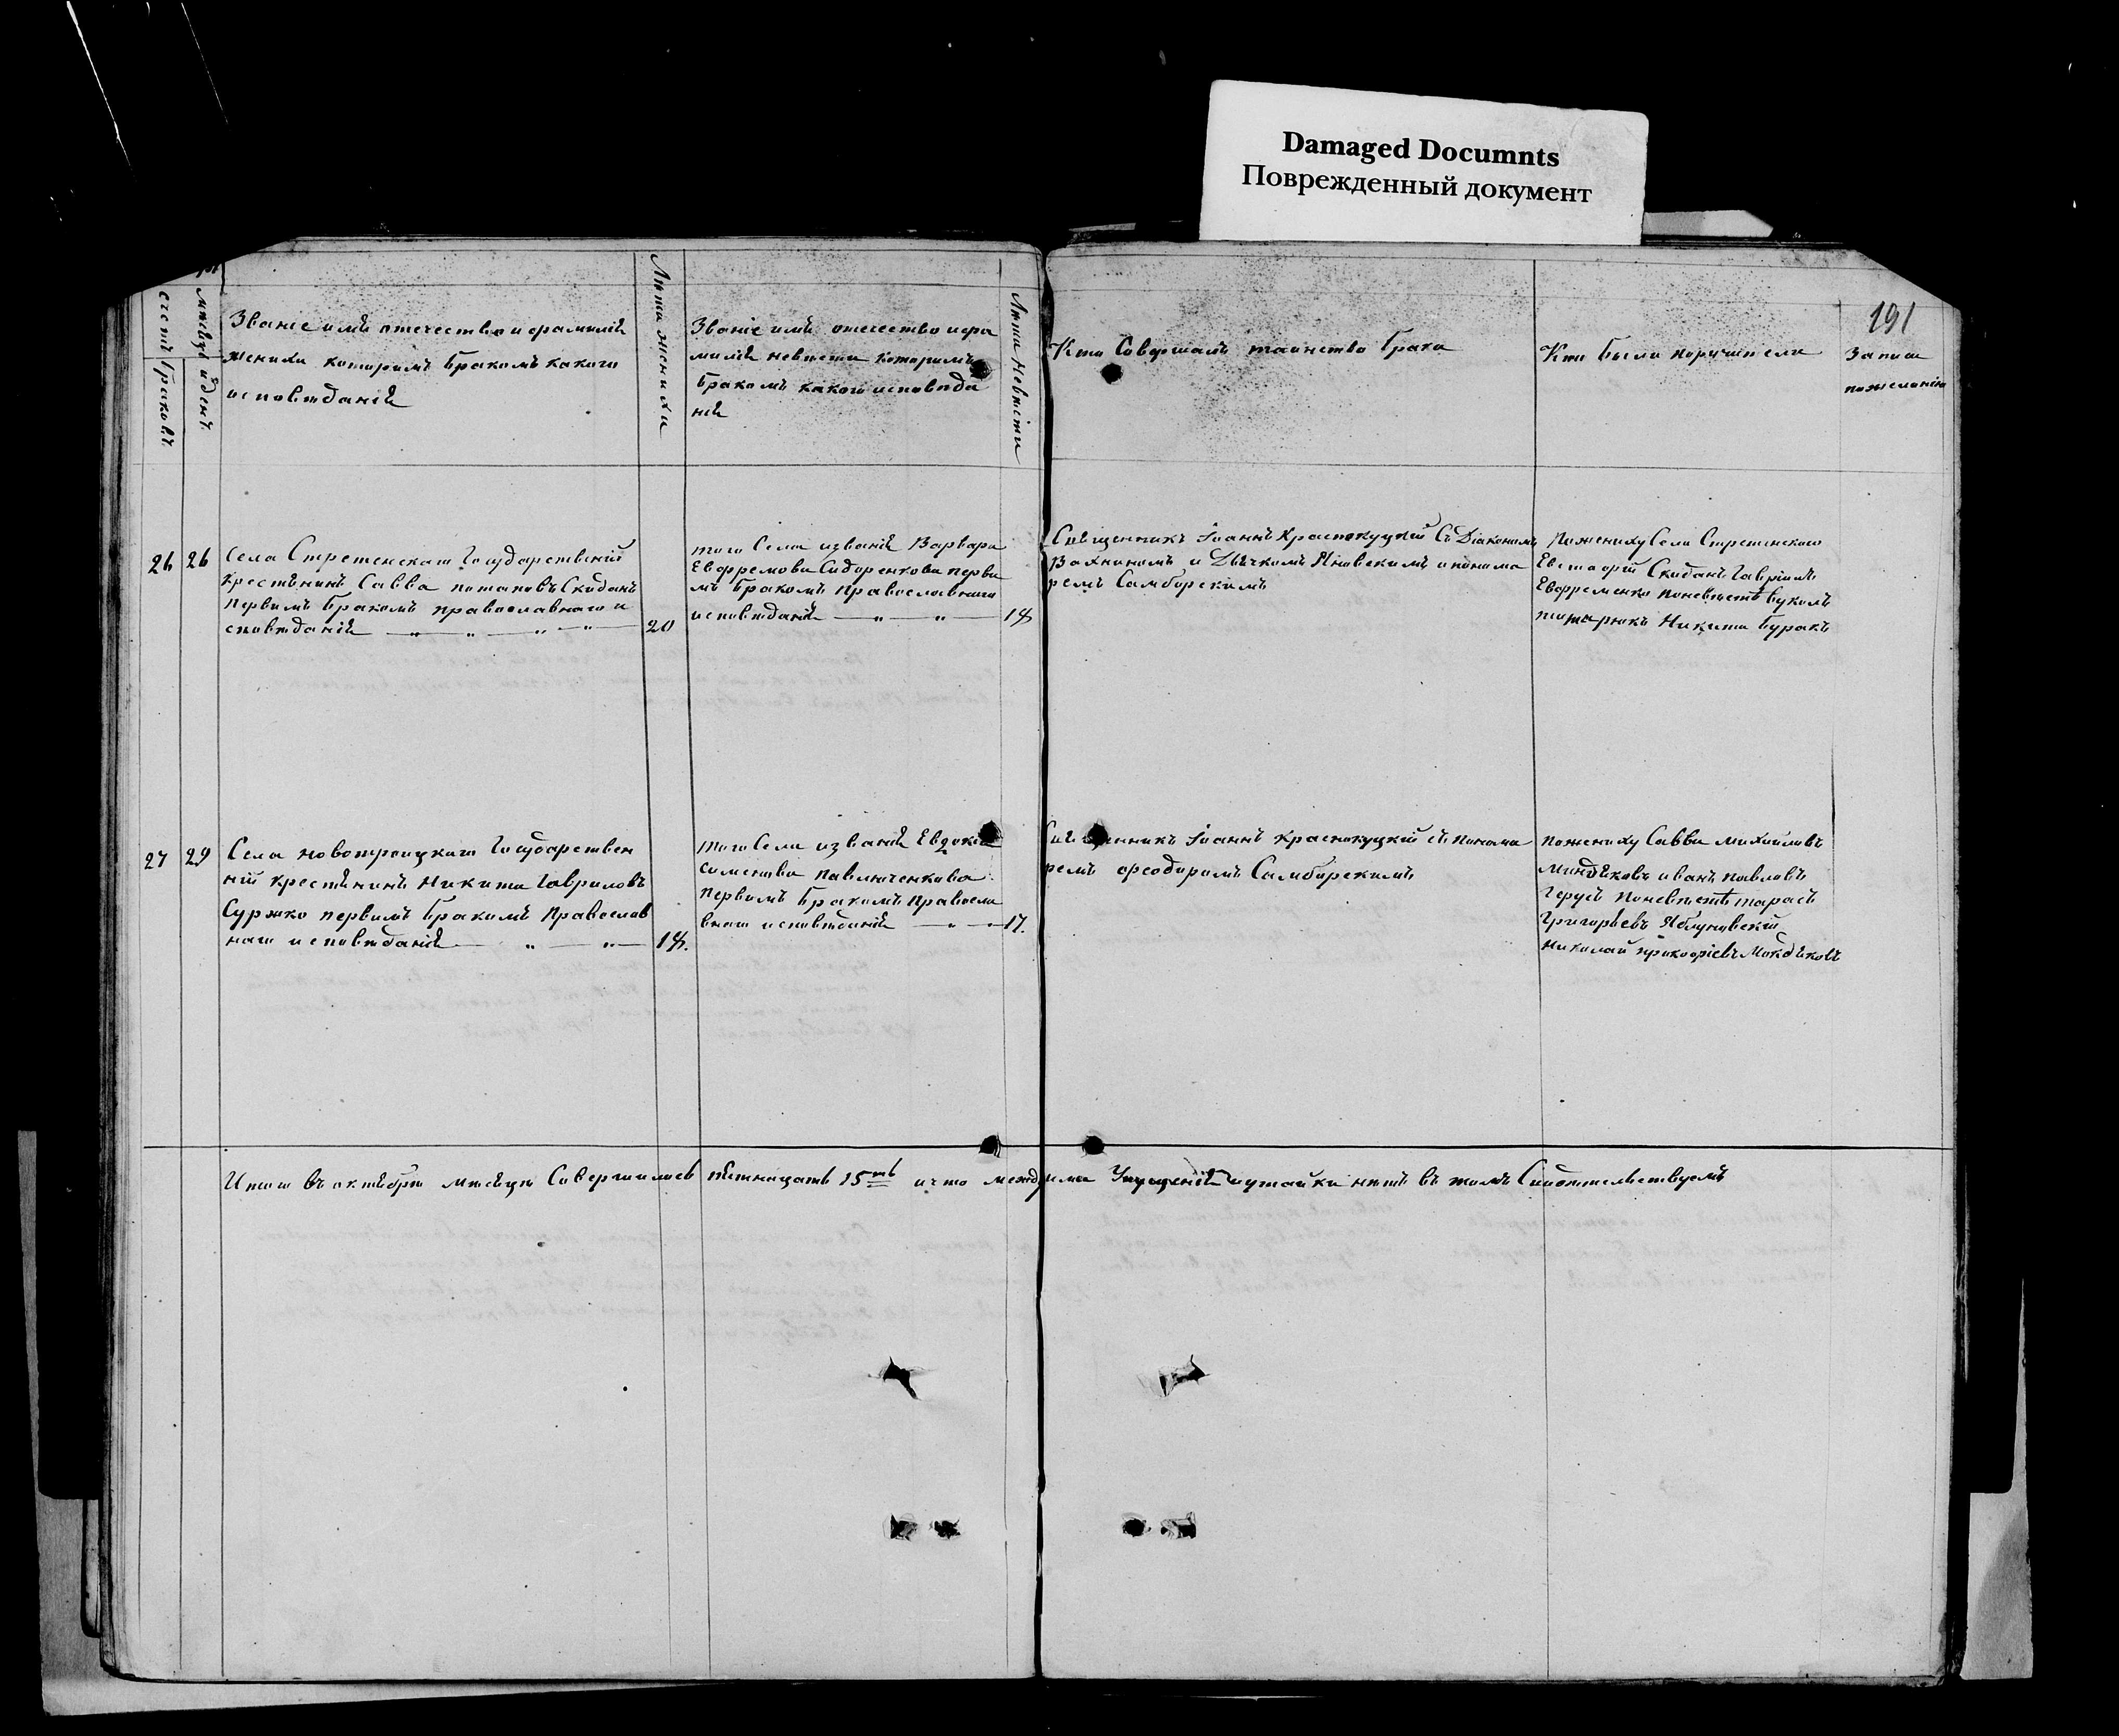 Damaged Documnts
Поврежденный документ
191
счетъ браковъ
мѣсяцъ и день
Званіе имя отечество и фамилія
жениха которимъ бракомъ какого
исповѣданія
Лѣта жениха
Званіе имя отечество и фа
милія невѣсти которимъ
бракомъ какого исповѣда
нія
Лѣта невѣсти
Кто Совершалъ таинство брака
Кто были поручители
Записи
по желанію
26 26
Села Стретенскаго Государственій
крестянинъ Савва потаповъ Скиданъ
первимъ бракомъ православнаго и
сповѣданія 20
того Села и званія Варвара
Ефремова Сидоренкова перви
мъ бракомъ православнаго
исповѣданія 18
Священникъ Іоаннъ Краснокуцкій Съ Діакономъ
и Дьячкомъ Яновскимъ и понома
ремъ Самборскимъ
По жениху Села Стретенскаго
Евстафій Скиданъ Гавріилъ
Ефременко по невѣстѣ вуколъ
Никита буракъ
27 29
Села новотроицкаго Государствен
ній крестянинъ Никита Гавриловъ
Суржко первимъ бракомъ Православ
наго исповѣданія 18.
того Села и званія Евдокія
Сименова павлюченкова
первимъ бракомъ православ
внаго исповѣданія 17.
Священникъ Іоаннъ Краснокуцкій съ понома
ремъ феодоромъ Самборскимъ
по жениху Савва михайловъ
иванъ павловъ
Герусъ по невѣстѣ тарасъ
Григорьевъ Яблуновскій
николай прокофіевъ
Итого въ октябрѣ мѣсяцѣ Совершилось пятнацать 15ть и что между ими Упущенія и утайки нѣтъ въ томъ Свидѣтельствуемъ